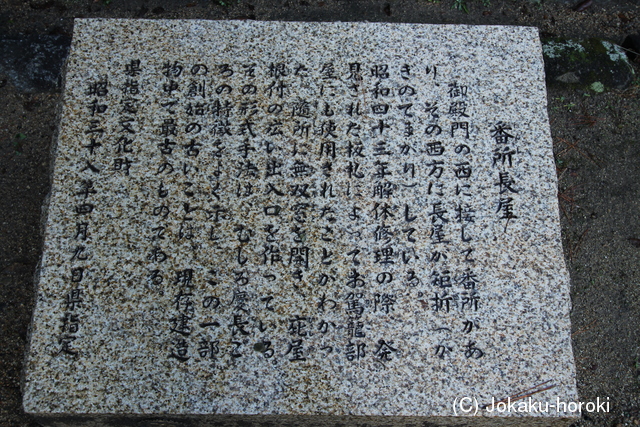 番所長屋
御殿門の西に接して番所があ
り、その西方に長屋が矩折(か
きのてまがり)している。
昭和四十三年解体修理の際、発
見された板札によってお駕籠部
屋にも使用されたことがわかっ
た。随所に無双窓を開き、庇屋
根付の広い出入口を作っている
その形式手法は、むしろ慶長ご
ろの特徴をよく示し、この一部
の創始の古いことは、現存建造
物中で最古のものである。
県指定文化財
昭和三十八年四月九日県指定
(C) Jokaku-horoki